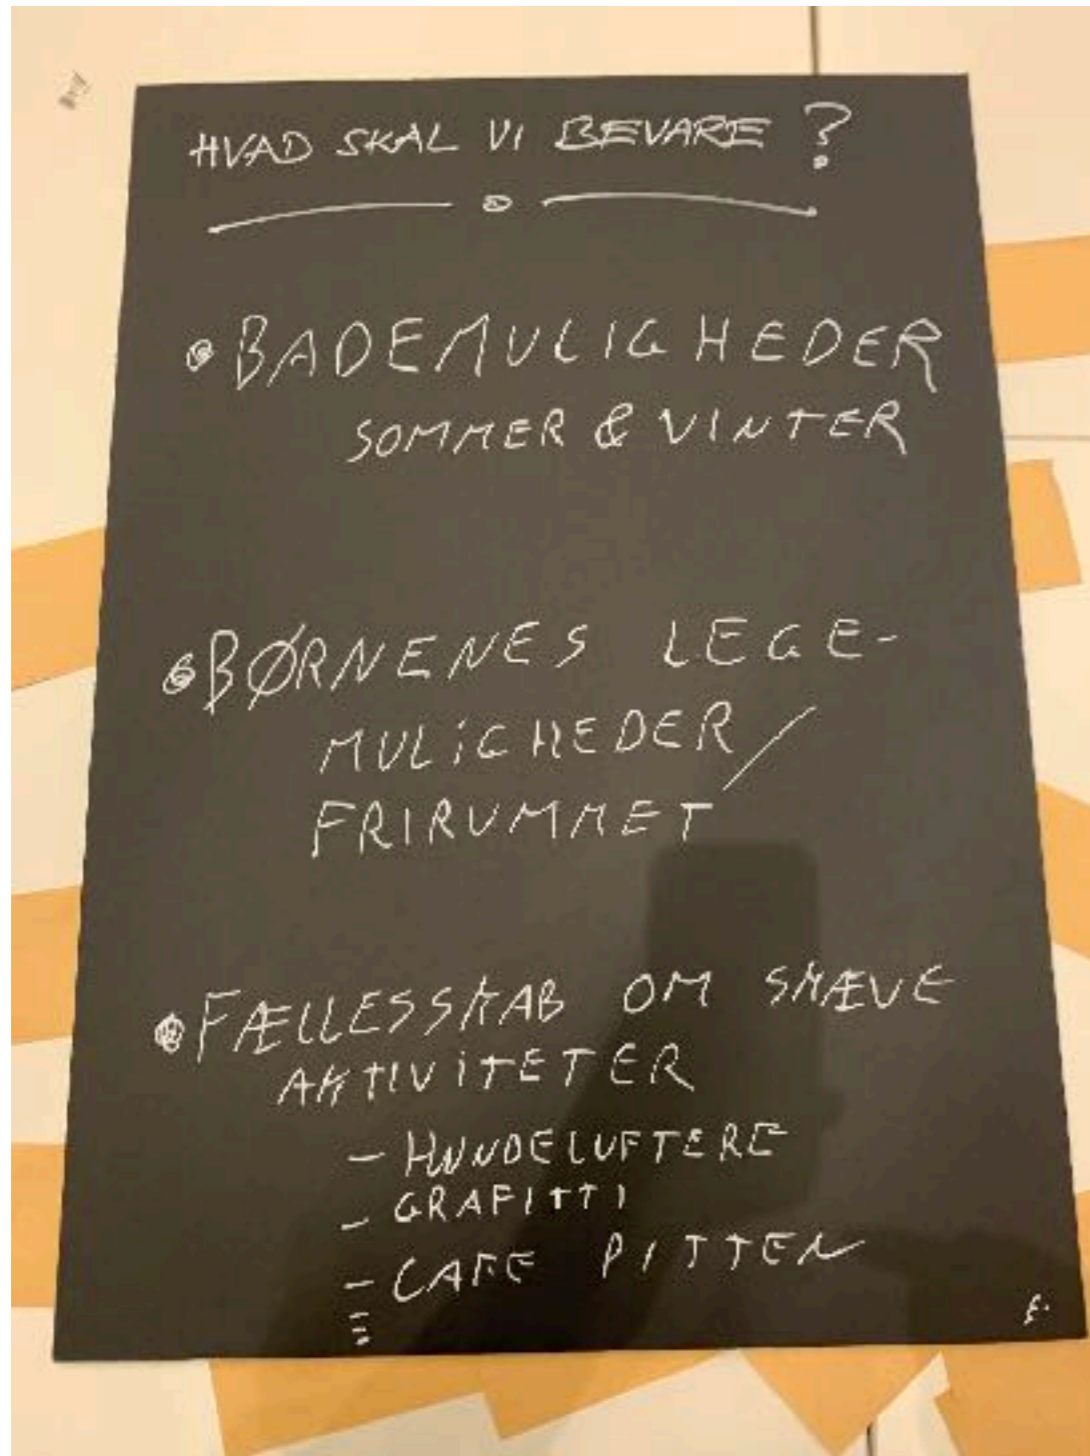 HVAD SKAL VI BEVARE ?
• BADEMULIGHEDER
SOMMER & VINTER
• BØRNENES LEGE-
MULIGHEDER /
FRIRUMMET
• FÆLLESSKAB OM SKÆVE
AKTIVITETER
- HUNDELUFTERE
- GRAFITTI
- CAFE PITTEN